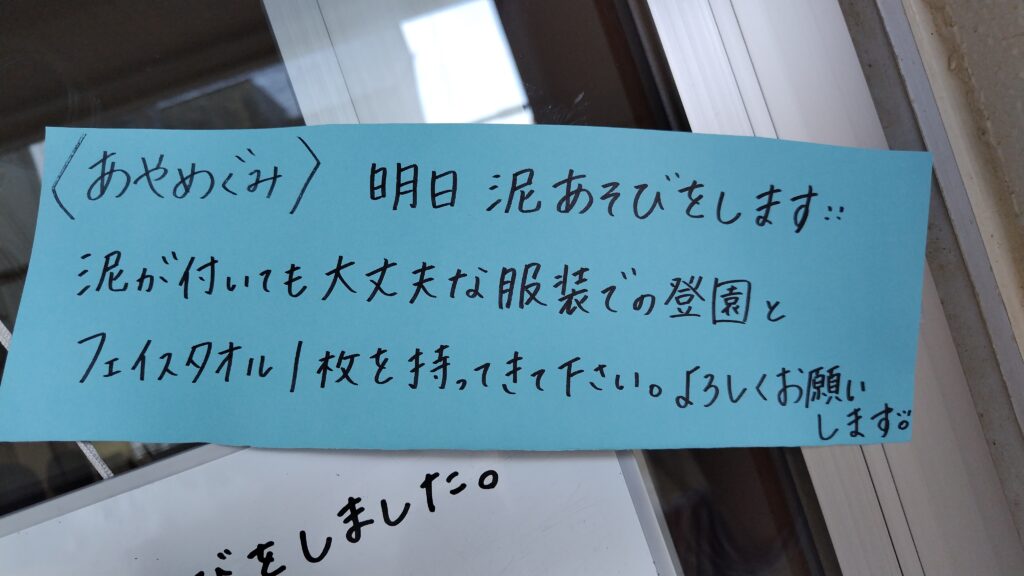 〈あやめぐみ〉 明日 泥あそびをします‥
泥が付いても大丈夫な服装での登園と
フェイスタオル1枚を持ってきて下さい。よろしくお願い
します。
びをしました。